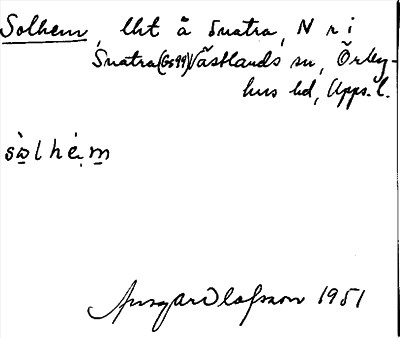 Solhem, lht å Snatra, N r i
Snatra (Gs 99) Västlands sn, Örby-
hus hd, Upps. l.
sòlhèm
Ansgar Olofsson 1951